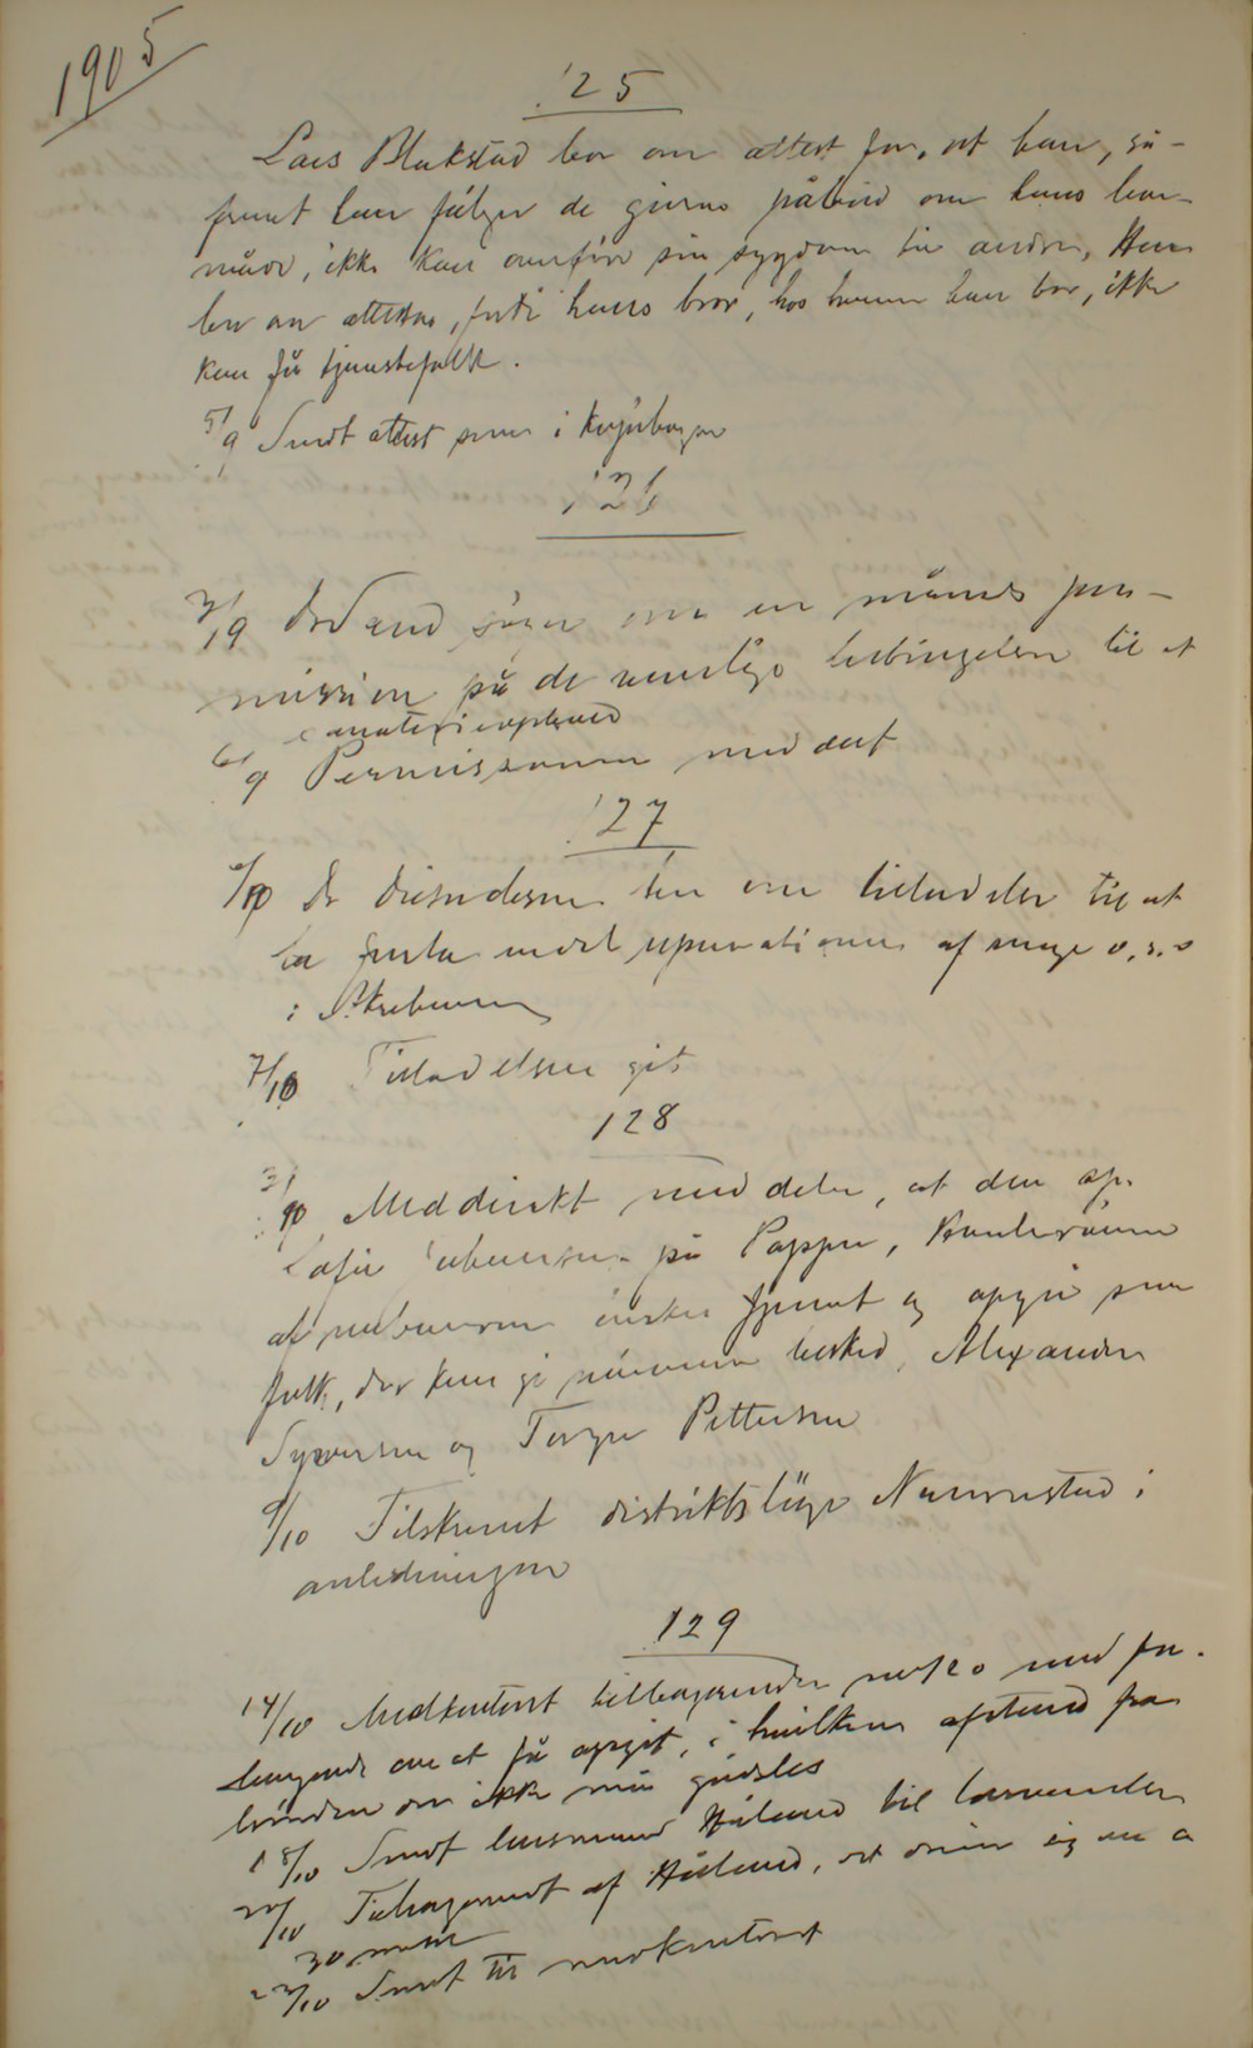 1905
125
Lars Blakstad ber om attest for, at han, så-
fremt han følger de givne påbud om hans bo-
måde, ikke kan overføre sin sygdom til andre, Han
ber om attesten, fordi hans bror, hos hvem han bor, ikke
kan få tjenestefolk.
5/9 Sendt attest som i kopibogen
126
3/9 Dr Sand søger om en måneds per-
mission på de vanlige betingelser til et
6/9 Permissionen meddelt
127
/10 Dr om tilladelse til at
la foreta reparationer af senge o.s.v
i
7/10 Tilladelsen git
128
3/10 Meddirekt meddeler, at den sp.
på Poppen,
ønskes fjernet og opgir som
folk, der kan gi nærmere besked, Alexander
Syversen og Torger Pettersen
9/10 Tilskrevet distriktslæge i
anledningen
129
14/10 Medkontoret tilbagesender med for-
langende om at få opgit, i hvilken afstand fra
brønden der ikke må gjødsles
18/10 Sendt lensmand Håland til besvarelse
20/10 Tilbagesendt af Håland, at
30 meter
23/10 Sendt til medkontoret